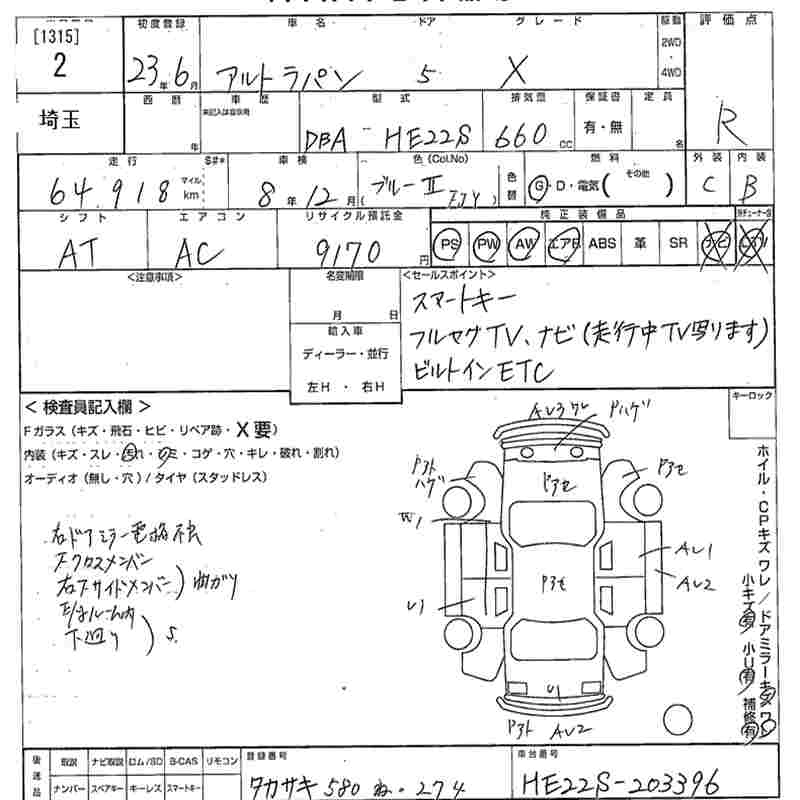 [1315]
2
埼玉
初度登録
23年6月
車名
アルトラパン
ドア
5
グレード
X
駆動
2WD
4WD
評価点
R
西暦
年
車歴
未記入は自家用
型式
DBA HE22S
排気量
660 CC
保証書
有・無
定員
名
走行
64,918
マイル
km
S#*
車検
8年12月
色(Col.No)
ブルーII
色替
燃料
G・D・電気(その他 )
外装
C
内装
B
シフト
AT
エアコン
AC
リサイクル預託金
9170円
純正装備品
PS PW AW エアB ABS 革 SR ナビ TV
<注意事項>
名変期限
月 日
輸入車
ディーラー・並行
左H ・ 右H
<セールスポイント>
スマートキー
フルセグTV、ナビ(走行中TV写ります)
ビルトインETC
<検査員記入欄>
Fガラス(キズ・飛石・ヒビ・リペア跡・X要)
内装(キズ・スレ・汚れ・シミ・コゲ・穴・キレ・破れ・割れ)
オーディオ(無し・穴)/タイヤ(スタッドレス)
右ドアミラー電格不良
Fクロスメンバー
右Fサイドメンバー)曲がり
下廻り)S
キーロック
AU3ワレ
Pハゲ
Pアト
ハゲ
Pアセ
Pアセ
W1
U1
Pアセ
AU1
AU2
U1
Pアト
AU2
ホイル・CPキズワレ/ドアミラーキズワレ
小キズ有 小U有 補修有
後送品
取説 ナビ取説 ロム/SD B-CAS リモコン
ナンバー スペアキー キーレス スマートキー
登録番号
タカサキ 580 ね・274
車台番号
HE22S-203396